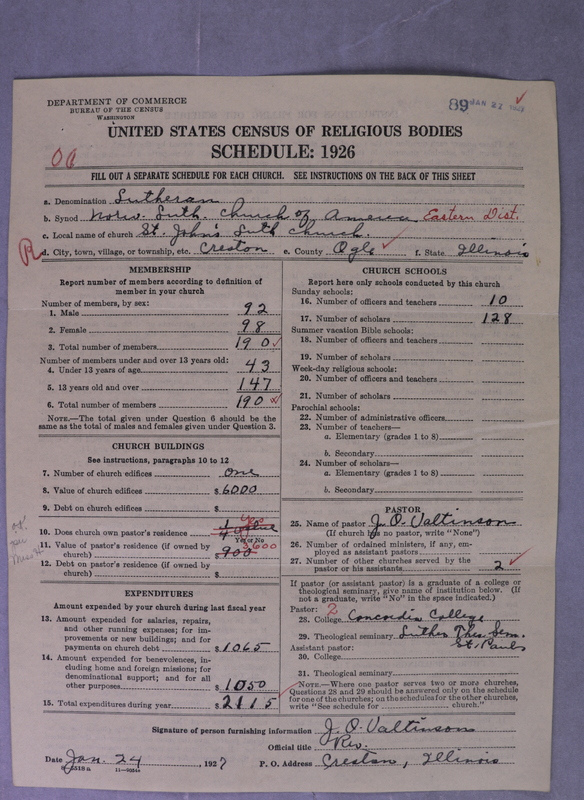 DEPARTMENT OF COMMERCE
BUREAU OF THE CENSUS
WASHINGTON
89 JAN 27
UNITED STATES CENSUS OF RELIGIOUS BODIES
SCHEDULE: 1926
FILL OUT A SEPARATE SCHEDULE FOR EACH CHURCH. SEE INSTRUCTIONS ON THE BACK OF THIS SHEET
a. Denomination Lutheran
b. Synod Norw. Luth. Church of America Eastern Dist.
c. Local name of church St. John's Luth Church.
R
d. City, town, village, or township, etc. Creston e. County Ogle f. State Illinois
MEMBERSHIP
Report number of members according to definition of
member in your church
Number of members, by sex:
1. Male 92
2. Female 98
3. Total number of members 190
Number of members under and over 13 years old:
4. Under 13 years of age 43
5. 13 years old and over 147
6. Total number of members 190
NOTE.—The total given under Question 6 should be the
same as the total of males and females given under Question 3.
CHURCH BUILDINGS
See instructions, paragraphs 10 to 12
7. Number of church edifices One
8. Value of church edifices $6000
9. Debt on church edifices $
10. Does church own pastor's residence? Yes
Yes or No
11. Value of pastor's residence (if owned by
church) $ 900 3600
12. Debt on pastor's residence (if owned by
church) $
EXPENDITURES
Amount expended by your church during last fiscal year
13. Amount expended for salaries, repairs,
and other running expenses; for im-
provements or new buildings; and for
payments on church debt $1065
14. Amount expended for benevolences, in-
cluding home and foreign missions; for
denominational support; and for all
other purposes $1050
15. Total expenditures during year $2115
CHURCH SCHOOLS
Report here only schools conducted by this church
Sunday schools:
16. Number of officers and teachers 10
17. Number of scholars 128
Summer vacation Bible schools:
18. Number of officers and teachers
19. Number of scholars
Week-day religious schools:
20. Number of officers and teachers
21. Number of scholars
Parochial schools:
22. Number of administrative officers
23. Number of teachers—
a. Elementary (grades 1 to 8)
b. Secondary
24. Number of scholars—
a. Elementary (grades 1 to 8)
b. Secondary
PASTOR
25. Name of pastor J. O. Valtinson
(If church has no pastor, write "None")
26. Number of ordained ministers, if any, em-
ployed as assistant pastors
27. Number of other churches served by the
pastor or his assistants 2
If pastor (or assistant pastor) is a graduate of a college or
theological seminary, give name of institution below. (If
not a graduate, write "No" in the space indicated.)
Pastor: 2
28. College Concordia College
29. Theological seminary Luther Theo. Sem.
Assistant pastor: St. Paul
30. College
31. Theological seminary
NOTE.—Where one pastor serves two or more churches,
Questions 28 and 29 should be answered only on the schedule
for one of the churches; on the schedules for the other churches,
write "See schedule for church."
Signature of person furnishing information J. O. Valtinson
Official title Rev.
Date Jan. 24, 1927 P. O. Address Creston, Illinois